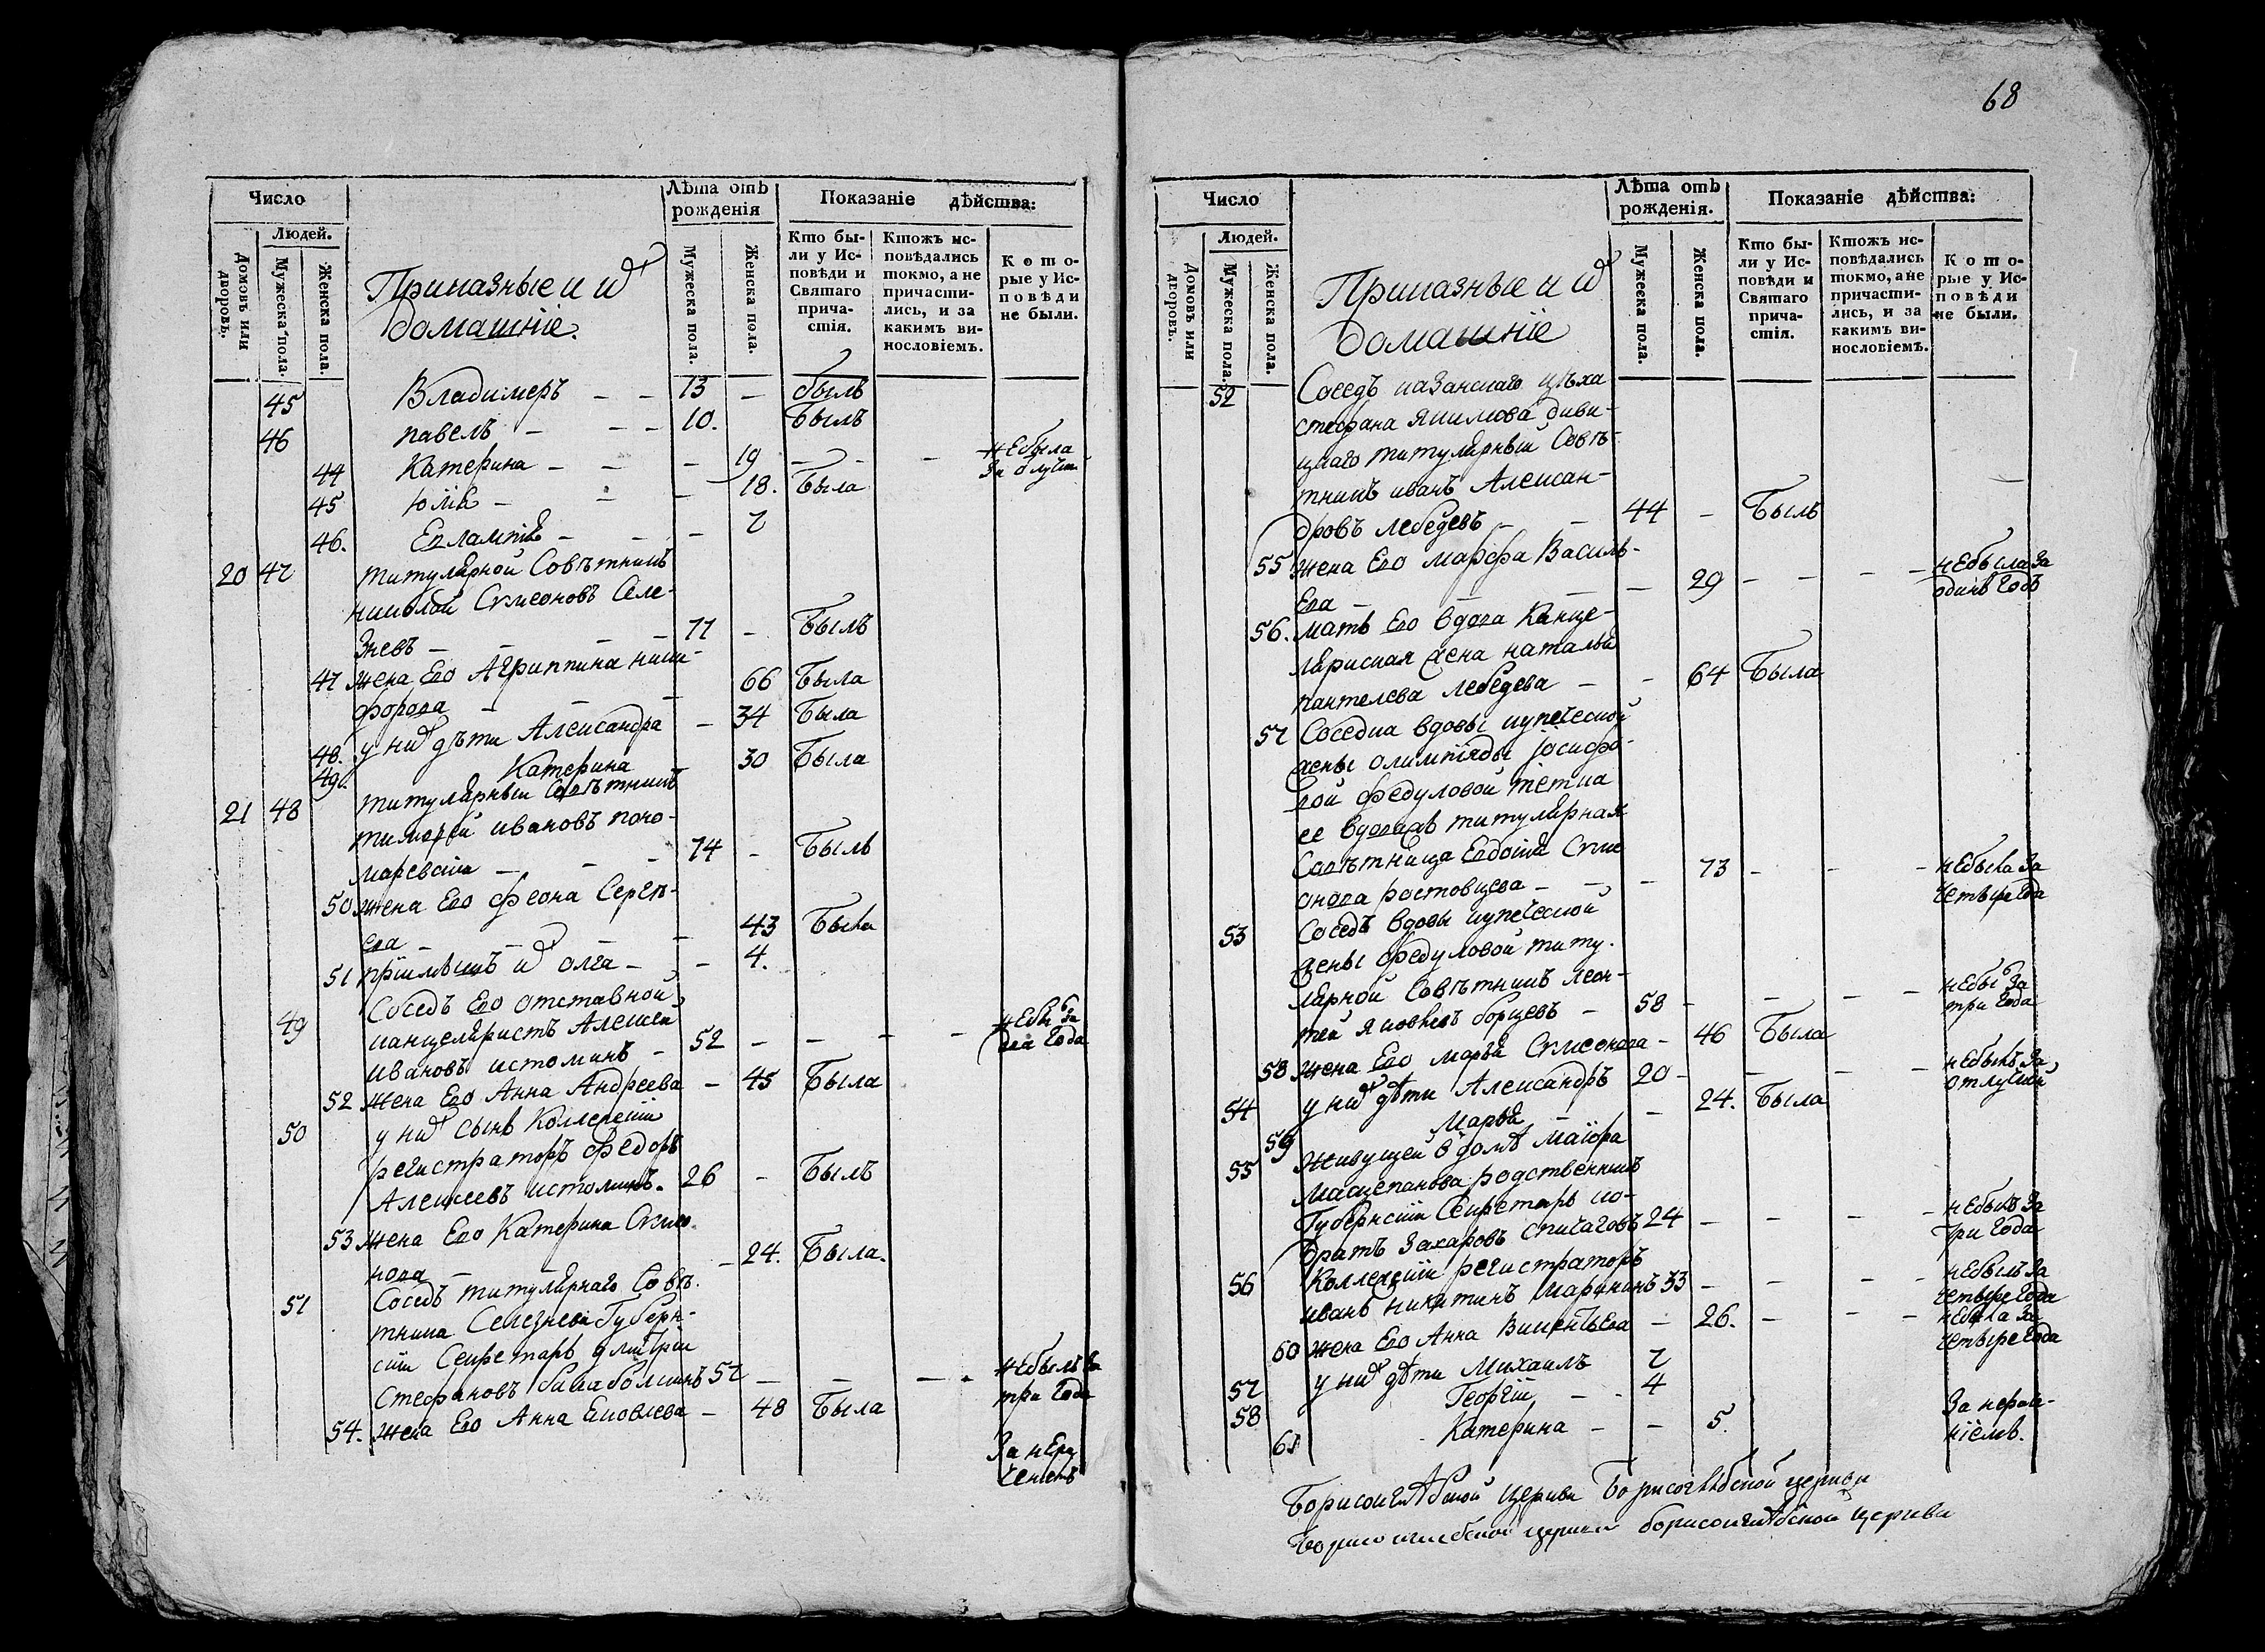 68
Число
Людей.
Домовъ или дворовъ.
Мужеска пола.
Женска пола.
Приказные и их
домашнїе.
Лѣта отъ
рожденія
Мужеска пола.
Женска пола.
Показаніе дѣйства:
Кто бы-
ли у Ис-
повѣди и
Святаго
прича-
стія.
Ктожъ ис-
повѣдались
токмо, а не
причасти-
лись, и за
какимъ ви-
нословіемъ.
Кото-
рые у Ис-
повѣди
не были.
45 Владимеръ – – 13 – былъ
46 павелъ – – – 10. Былъ
44 Катерина – – – 19 – – – небыла
за отлуч
45 Юлїа – – – 18. Была
46. Евлампїа – – – 7
20 47 титулярной Совѣтникъ
николай Симеоновъ Селе-
зневъ – – – 71 – Былъ
47 жена Его Агриппина ники-
форова – – – 66 Была
48. у них дѣти Александра – 34 Была
49. Катерина 30 Была
21 48 титулярный Совѣтникъ
тимофей ивановъ поно-
маревскїи – – – 74 – Былъ
50 жена Его феона Сергѣ-
ева – – – – 43 Была
51 прїимышъ их олга – – 4.
Соседъ Его отставной
49 канцеляристъ Алексей
ивановъ истоминъ – 52 – – – – небы за
два года
52 жена Его Анна Андреева – 45 Была
50 у них сынъ Коллежскїи
регистраторъ федоръ
Алексеевъ истоминъ. 26 – Былъ
53 жена Его Катерина Симео
нова – – – 24. Была.
51 Соседъ титулярнаго Совѣ-
тника Селезнева Губерн-
скїи Секретарь дмитрїи
Стефановъ балаболкинъ 57 – – – – небылъ за
три года
54. жена Его Анна Яковлева – 48 Была
За нера
ченїемъ
Число
Людей.
Домовъ или дворовъ.
Мужеска пола.
Женска пола.
Приказные и их
домашнїе
Лѣта отъ
рожденія.
Мужеска пола.
Женска пола.
Показаніе дѣйства:
Кто бы-
ли у Ис-
повѣди и
Святаго
прича-
стія.
Ктожъ ис-
повѣдались
токмо, а не
причасти-
лись, и за
какимъ ви-
нословіемъ.
Кото-
рые у Ис-
повѣди
не были.
52 Соседъ казанскаго цѣха
стефана якимова диви-
цкаго титулярный Совѣ-
тникъ иванъ Алексан-
дровъ лебедевъ – – 44 – Былъ
55 жена Его марфа Василь-
Ева – – – – 29 – – – – небыла за
одинъ годъ
56. мать Его вдова Канце-
ляриская жена наталья
пантелева лебедева – – 64 Была
57 Соседка вдовы купеческой
жены олимпїяды їосифо-
вой федуловой тетка
ее вдовая титулярная
Совѣтница Евдокїя Симе
онова ростовцева – – – 73 – – – небыла за
четыре года
53 Соседъ вдовы купеческой
жены федуловой титу-
лярной Совѣтникъ леон-
тей яковлевъ борщевъ – 58 – – – – небы за
три года
58 жена Его марья Симеонова – 46 Была
54 у них дѣти Александръ 20 – – – – небылъ за
отлучкой
59 Марья – – 24. Была
55 живущей в домѣ маїора
Мащепанова родственникъ
Губернскїи Секретарь ко-
дратъ Захаровъ Спичаговъ 24 – – – – небылъ за
три года
56 Коллежскїи регистраторъ
иванъ никитинъ Маркинъ 33 – – – – небылъ за
четыре года
60 жена Его Анна Викентьева – 26. – – – небыла за
четыре года
57 у них дѣти Михаилъ 7
58 Георгїй – – 4
61 Катерина – – 5.
За нераче-
нїемъ.
Борисоглѣбской церкви Борисоглѣбской церкви
Борисоглебской церкви борисоглѣбской церкви